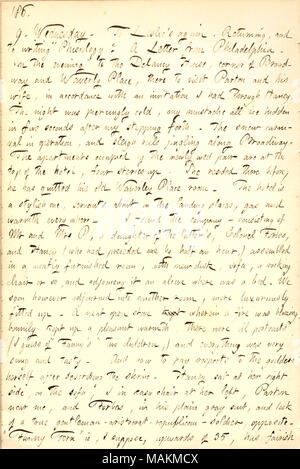 186.
9. Wednesday. To Leslie's again. Returning, and
to writing "Phisiology": A Letter from Philadelphia.
In the evening to the Delancy House, corner of Broad-
way and Waverly Place, there to visit Parton and his
wife, in accordance with an invitation I had through Haney.
The night was piercingly cold, my mustache all ice hidden
in five seconds after my stepping forth. The snow carni-
val in operation, and sleigh bells jingling along Broadway.
The apartments occupied by the newly wed pair are at the
top of the hotel, four stories up. She resided there before,
he has quitted his old Waverley Place room. The hotel is
a stylish one, servants about on the landing places, gas and
warmth everywhere. I found the company consisting of
Mr and Mrs P, a daughter of the latter's, Colonel Forbes,
and Haney (who had preceded me by half an hour,) assembled
in a neatly furnished room, with new desk, sofa, a rocking
chair or so, and adjoining it an alcove where was a bed. We
soon however adjourned into another room, more luxuriously
fitted up. A neat open stove wherein a fire was blazing
bonnily kept up a pleasant warmth. There were oil portraits
(guess of Fanny's two children,) and everything was very
snug and tasty. And now to pay respects to the goddess
herself after describing the shrine. Fanny sat at her right
side, on the sofa, I in easy chair at her left, Parton
near me, and Forbes, in his plain gray suit, and look
of a true gentleman-aristocrat-republican-soldier, opposite.
"Fanny Fern" is, I suppose, upwards of 35, has fairish
alamy
Image ID: MAKMCX
www.alamy.com